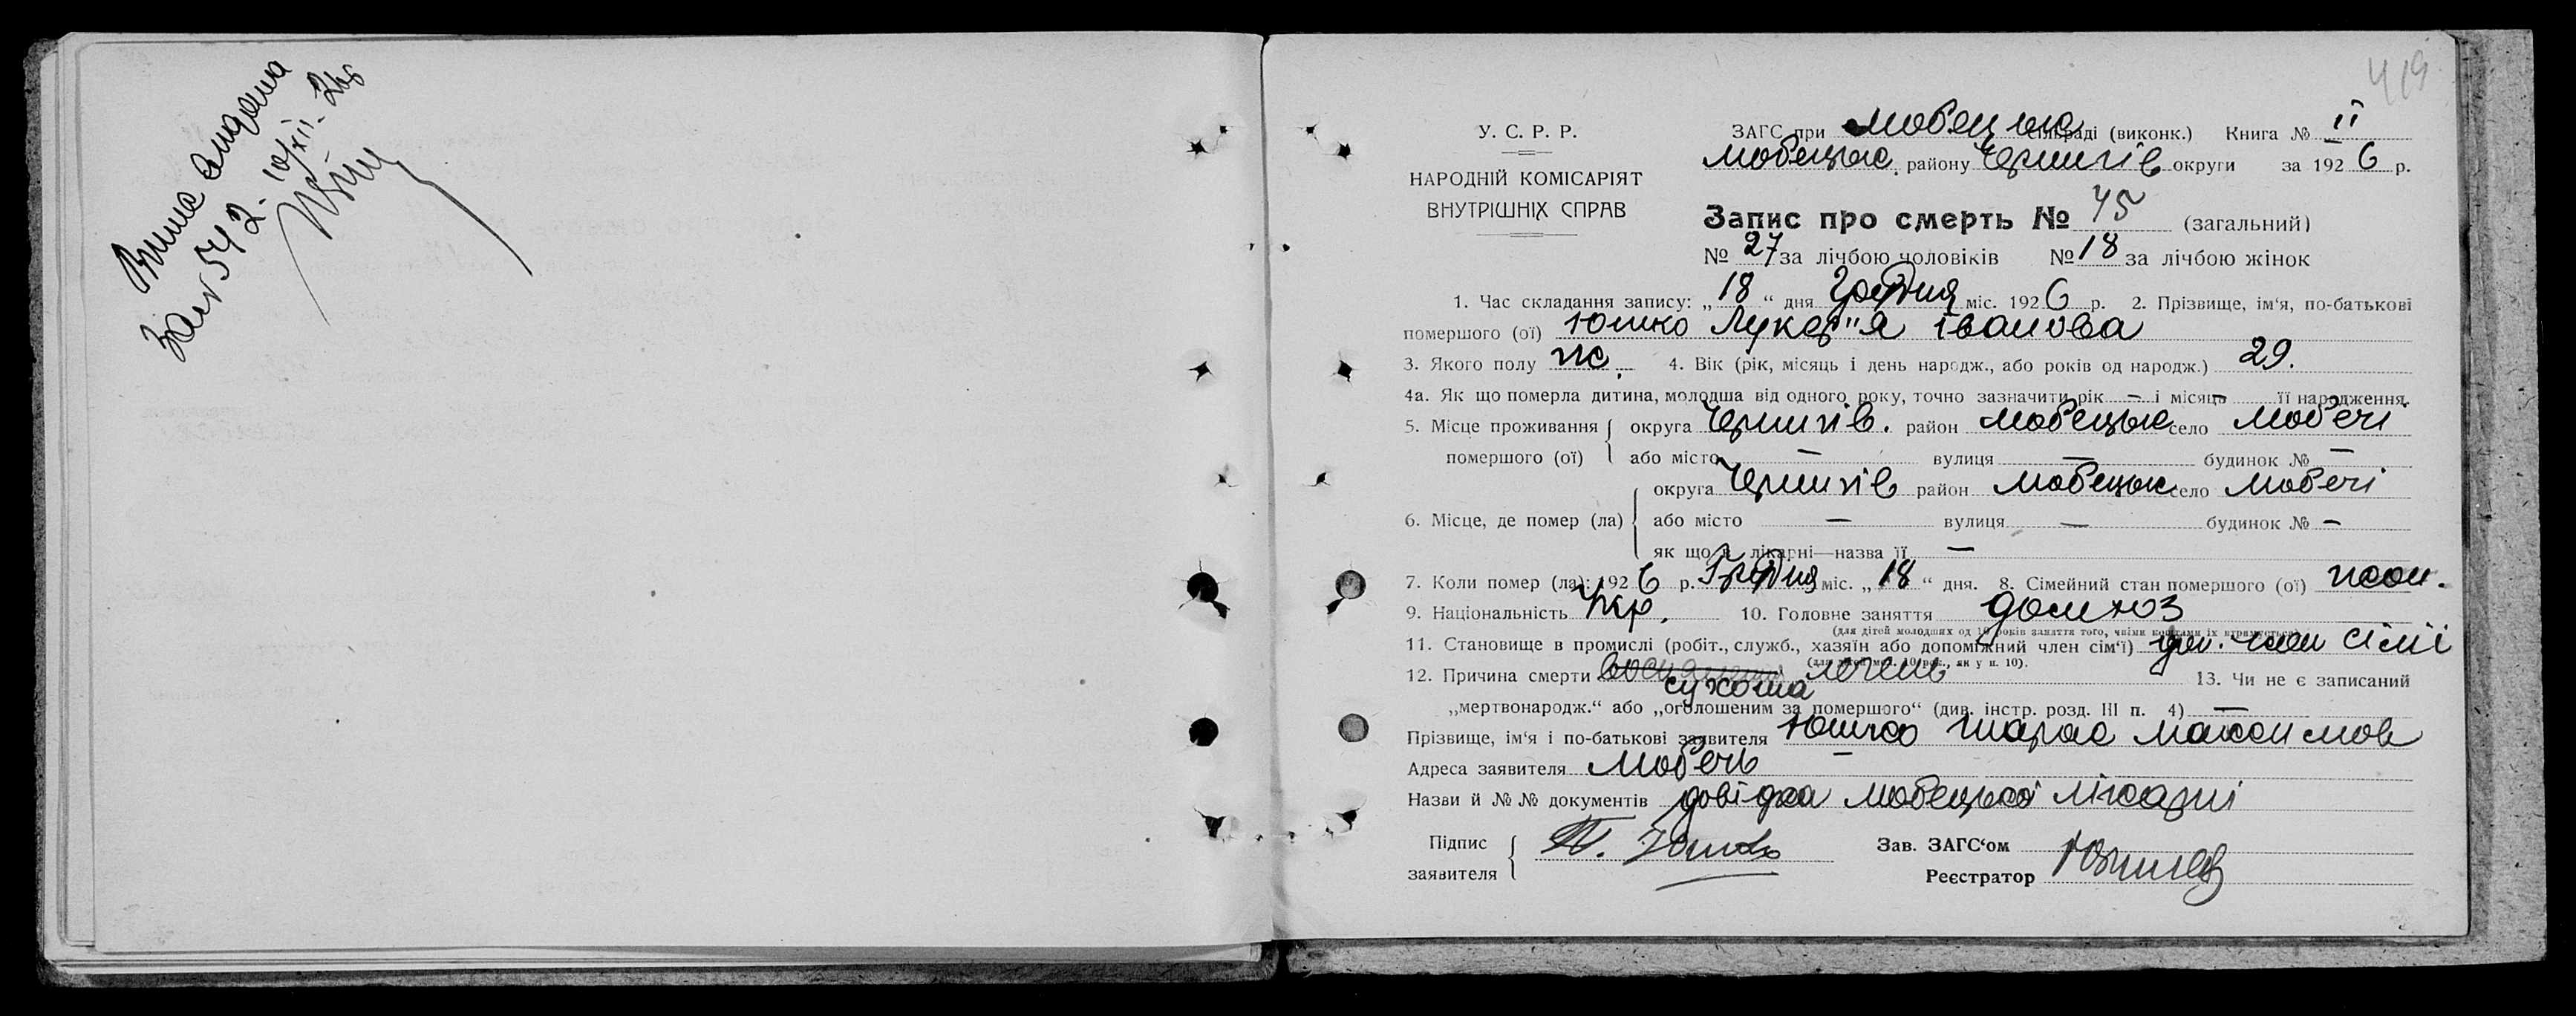 419
Випис видана
За № 542. 10/XII-26
У. С. Р. Р.
НАРОДНІЙ КОМІСАРІЯТ
ВНУТРІШНІХ СПРАВ
ЗАГС при Любецьк сільраді (виконк.) Книга № II
Любецьк. району Чернигів округи за 1926 р.
Запис про смерть № 45 (загальний)
№ 27 за лічбою чоловіків № 18 за лічбою жінок
1. Час складання запису: „18“ дня Грудня міс. 1926 р. 2. Прізвище, ім‘я, по-батькові
помершого (ої) Юшко Лукер"я Іванова
3. Якого полу ж. 4. Вік (рік, місяць і день народж., або років од народж.) 29.
4а. Як що померла дитина, молодша від одного року, точно зазначити рік — і місяць — її народження.
5. Місце проживання помершого (ої) округа Чернигів. район Любецьк село Любечі
або місто — вулиця — будинок № —
6. Місце, де помер (ла) округа Чернигів район Любецьк село Любечі
або місто — вулиця — будинок № —
як що в лікарні—назва її —
7. Коли помер (ла): 1926 р. Грудня міс. „18“ дня. 8. Сімейний стан помершого (ої) жон.
9. Національність Укр. 10. Головне заняття домхоз
(для дітей молодших од 10 років заняття того, чиїми коштами їх утримується)
11. Становище в промислі (робіт., служб., хазяїн або допоміжний член сім‘ї) доп. член сімї
(для дітей мол. 10 рок., як у п. 10).
12. Причина смерти сухота 13. Чи не є записаний
„мертвонародж.“ або „оголошеним за помершого“ (див. інстр. розд. III п. 4) —
Прізвище, ім‘я і по-батькові заявителя Юшко Тарас Максимов
Адреса заявителя Любечь —
Назви й №№ документів довідка Любецької лікарні
Підпис заявителя Т. Юшко
Зав. ЗАГС‘ом
Реєстратор